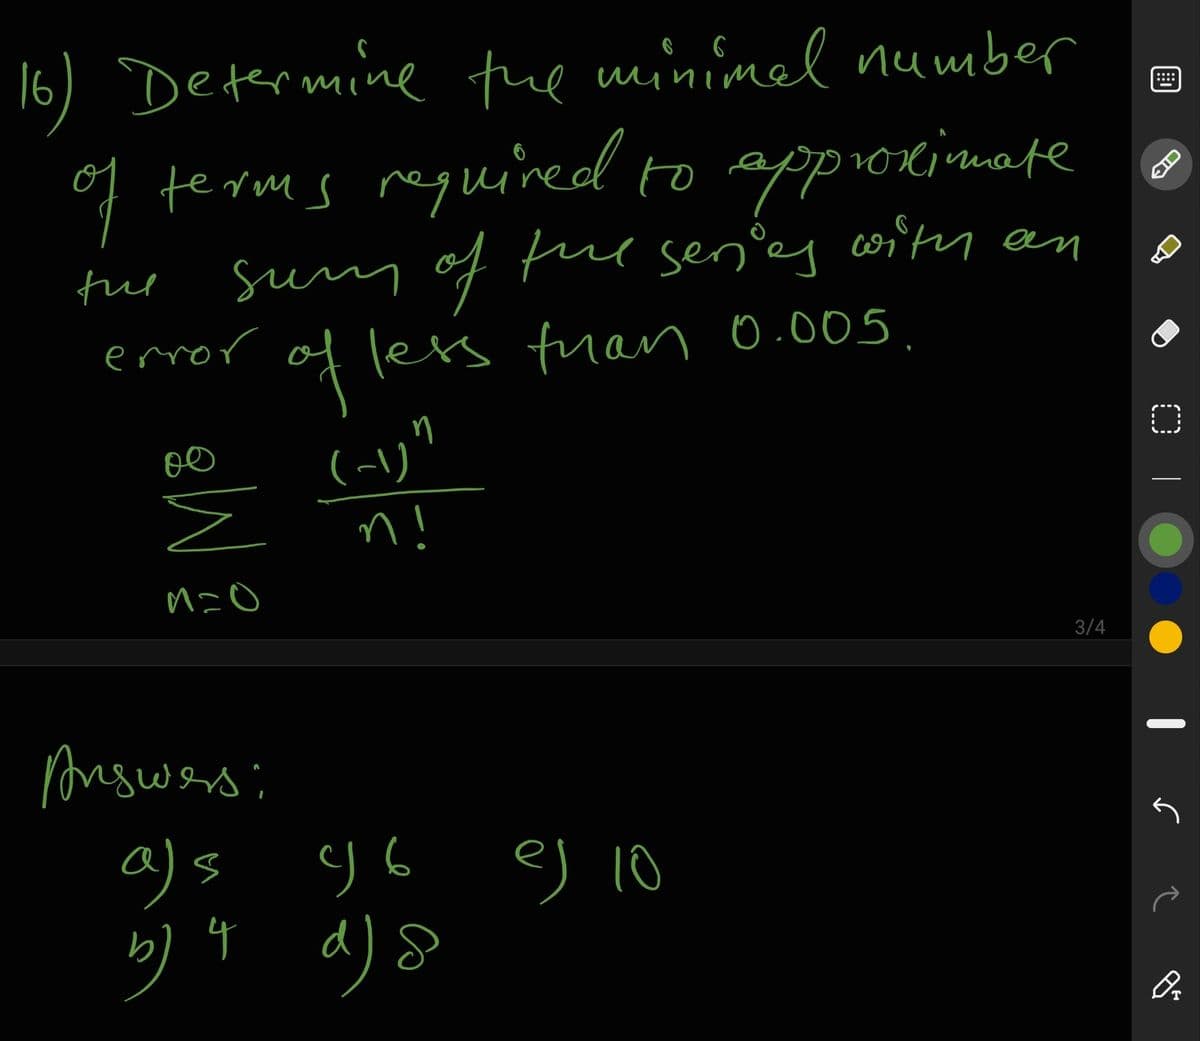 16) Determine the minimal number
of terms required to approximate
the sum of the series with an
error of less than 0.005.
∞ (-1)^n
Σ n!
n=0
3/4
Answers:
a) 5 c) 6 e) 10
b) 4 d) 8
T